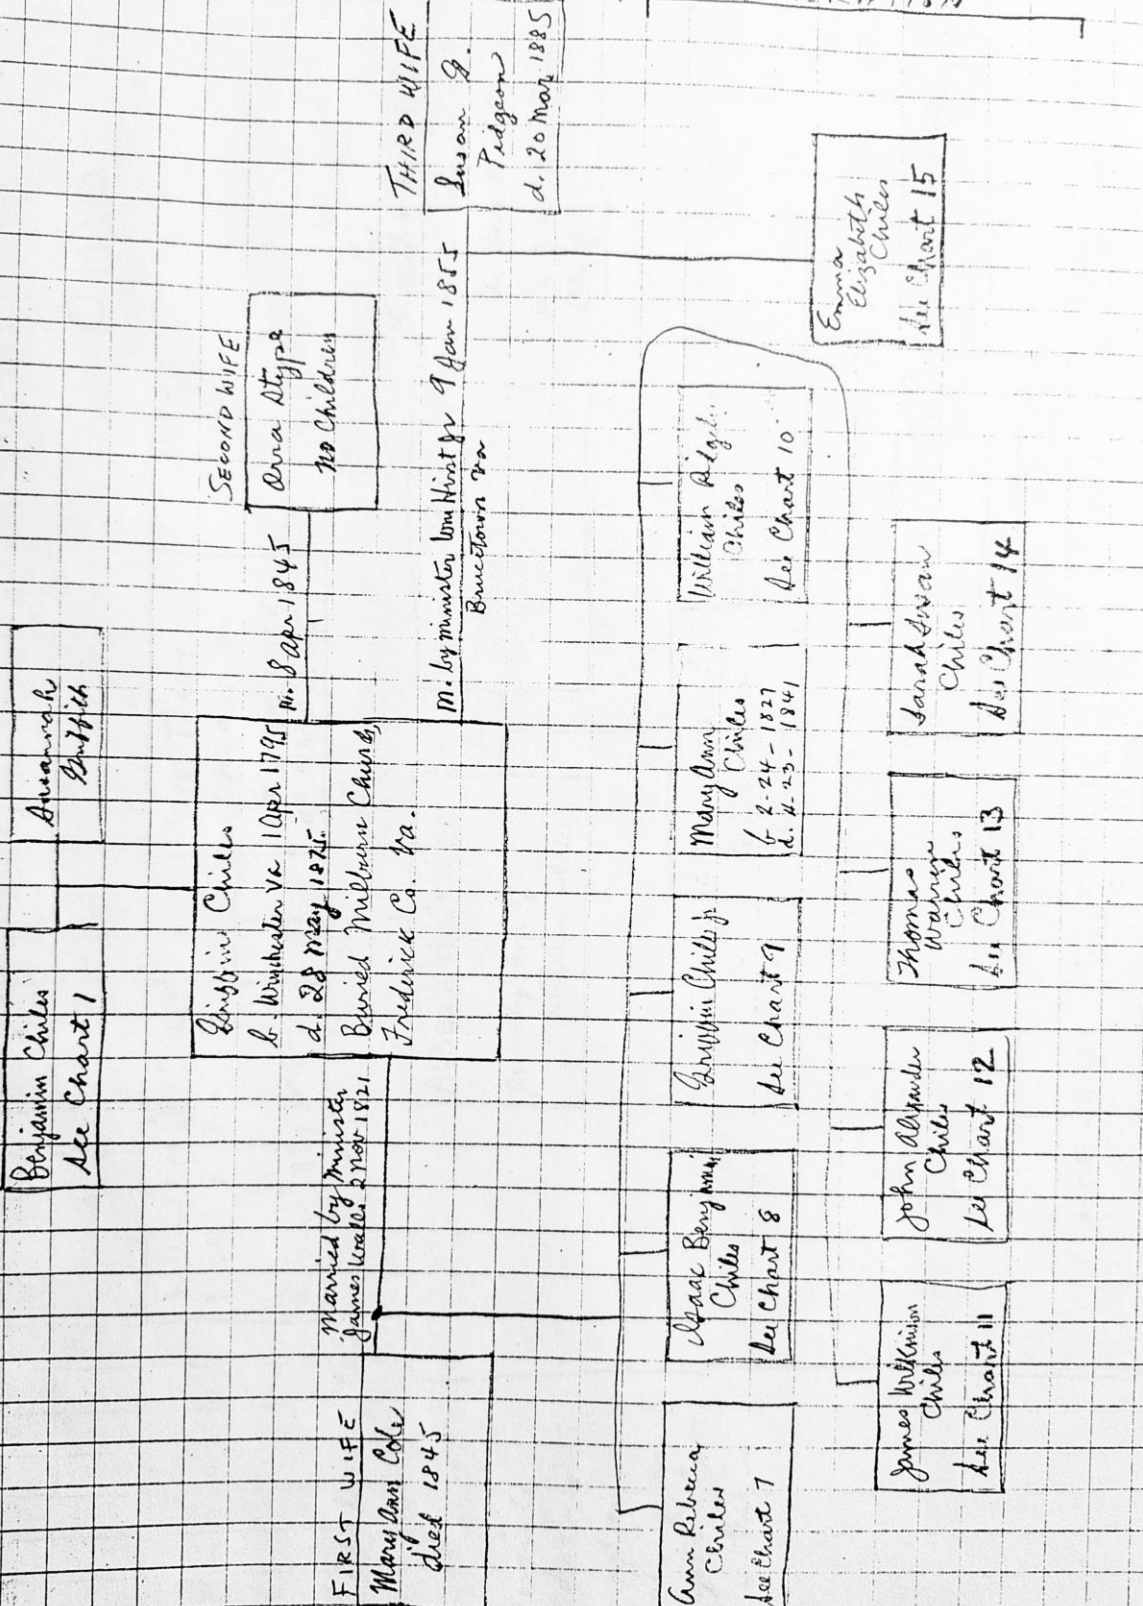 Benjamin Chiles
See Chart 1
Susannah
Griffith
Griffin Chiles
b. Winchester Va 1 Apr 1795
d. 28 May 1875
Buried Milburn Church,
Frederick Co. Va.
FIRST WIFE
Mary Ann Cole
died 1845
Married by minister
James Walls 2 Nov 1821
SECOND WIFE
No Children
m. 8 Apr 1845
THIRD WIFE
Susan
Pidgeon
d. 20 Mar 1885
m. by minister Wm Hirst Jr 9 Jan 1855
Brucetown Va
Ann Rebecca
Chiles
See Chart 7
Isaac Benjamin
Chiles
See Chart 8
Griffin Chiles Jr
See Chart 9
Mary Ann
Chiles
b 2-24-1827
d. 1841
William
Chiles
See Chart 10
James Wilkinson
Chiles
See Chart 11
John Alexander
Chiles
See Chart 12
Thomas
Chiles
See Chart 13
Sarah Susan
Chiles
See Chart 14
Emma
Elizabeth
Chiles
See Chart 15